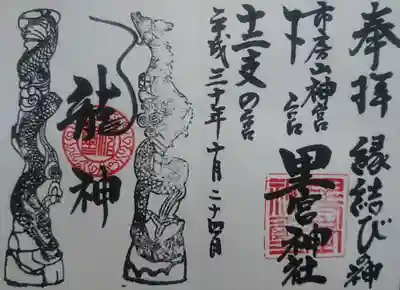 奉拝
縁結びの神
里宮神社
市房山神宮
下宮
十二支の宮
平成三十年十月二十四日
龍神